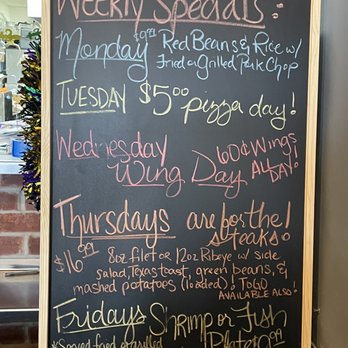 Weekly Specials:
Monday $9.99 Red Beans & Rice w/
Fried or Grilled Pork Chop
Tuesday $5.00 pizza day!
Wednesday 60¢ Wings
Wing Day All Day!
Thursdays are for the
steaks!
$16.99 8oz filet or 12oz Ribeye w/ side
salad, Texas toast, green beans, &
mashed potatoes (loaded)! ToGo
Available Also!
Fridays Shrimp or Fish
Plates